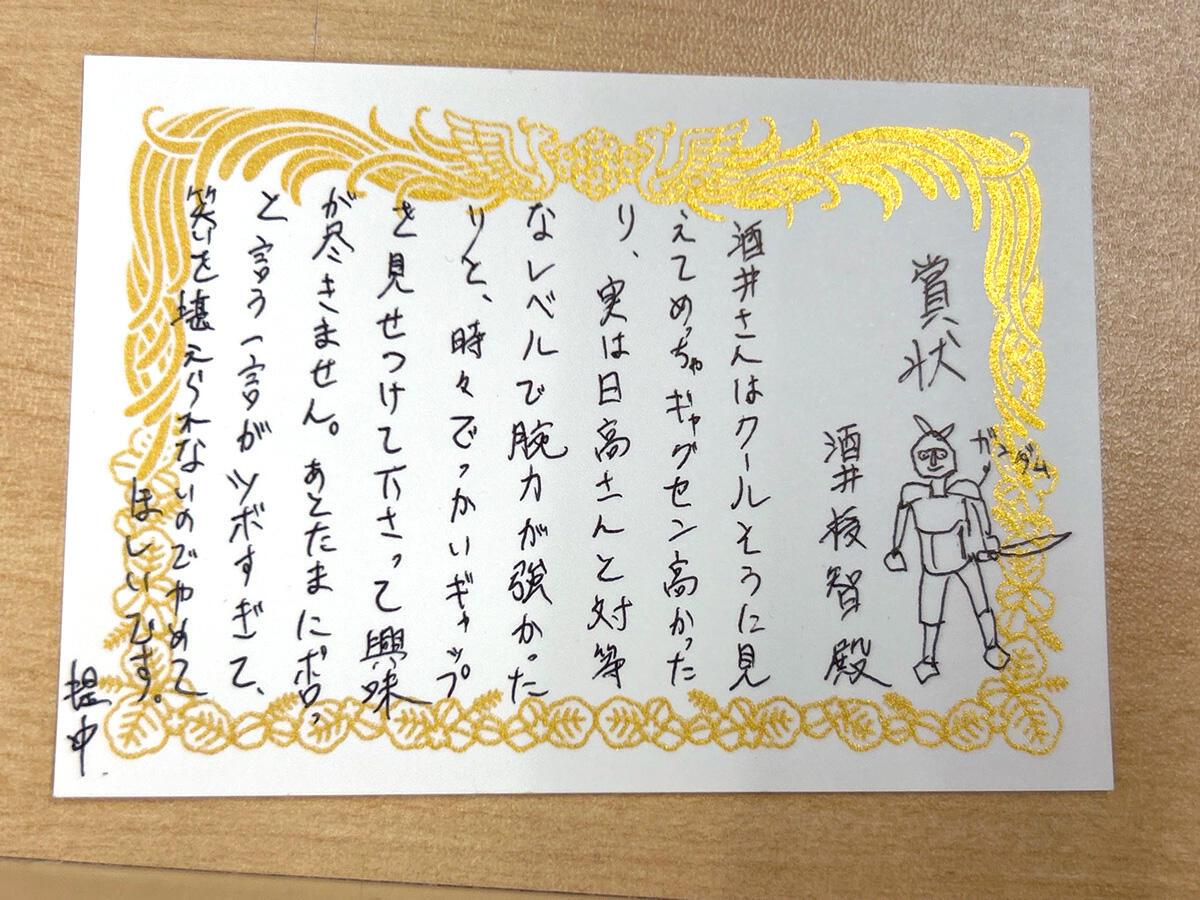 賞状
ガンダム
酒井 智殿
酒井さんはクールそうに見
えてめっちゃギャグセン高かった
り、実は日高さんと対等
なレベルで腕力が強かった
りと、時々でっかいギャップ
を見せつけて下さって興味
が尽きません。あとたまにポロッ
と言う一言がツボすぎて、
笑いを堪えられないのでやめて
ほしいです。
堤中